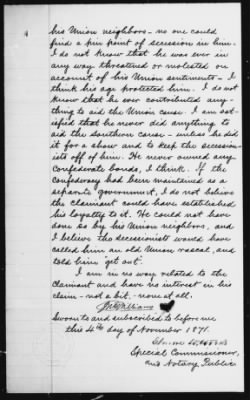 his Union neighbors - no one could
find a pin point of secession in him.
I do not know that he was ever in
any way threatened or molested on
account of his Union sentiments - I
think his age protected him. I do not
know that he ever contributed any-
thing to aid the Union cause. I am sat-
isfied that he never did anything to
aid the southern cause - unless he did
it for a show and to keep the secession-
ists off of him. He never owned any
Confederate bonds, I think. If the
Confederacy had been maintained as a
separate government, I do not believe
the claimant could have established
his loyalty to it. He could not have
done so by his Union neighbors, and
I believe the secessionists would have
called him an old Union rascal, and
told him "get out".
I am in no way related to the
claimant and have no interest in his
claim - not a bit - none at all.
Sworn to and subscribed before me
this 4th day of November 1871.
Special Commissioner,
and Notary Public